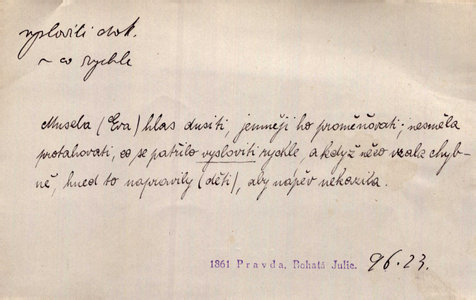 vysloviti dok.
~ co rychle
Musela (Eva) hlas dusiti, jemněji ho proměňovati; nesměla
protahovati, co se patřilo vysloviti rychle, a když něco vzala chyb-
ně, hned to napravily (děti), aby nápěv nekazila.
1861 Pravda, Bohatá Julie. 96.23.